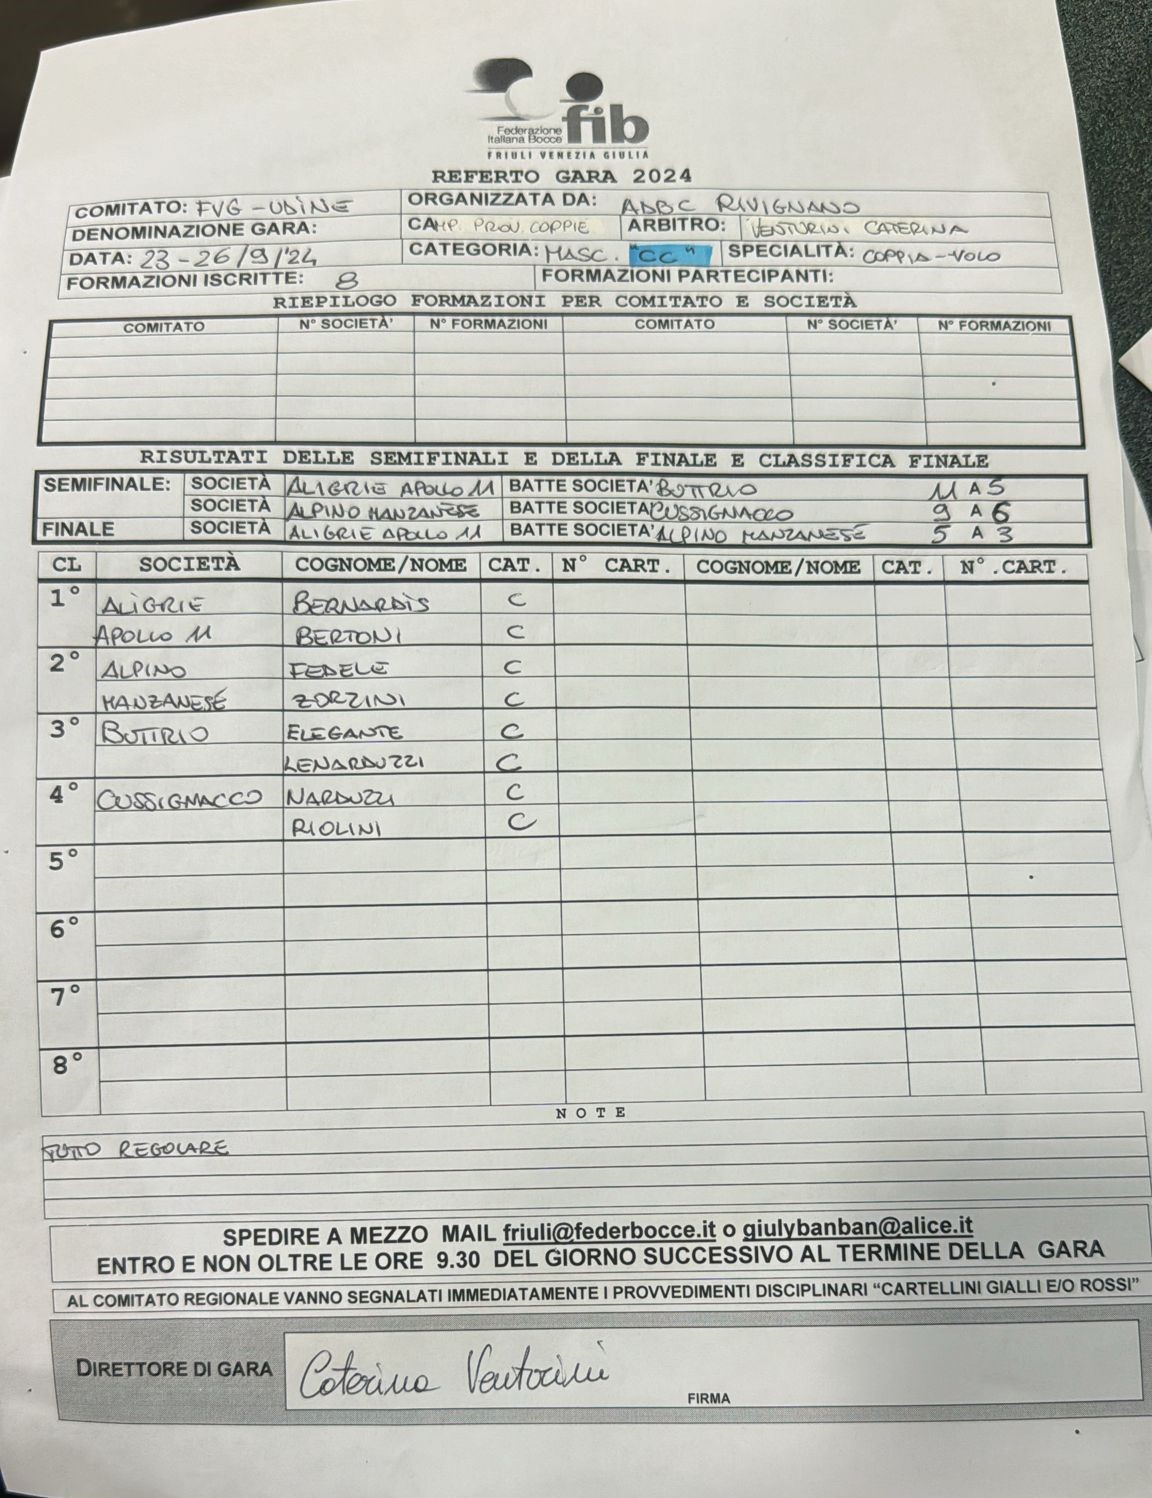 Federazione
Italiana Bocce
fib
FRIULI VENEZIA GIULIA
REFERTO GARA 2024
COMITATO: FVG - UDINE ORGANIZZATA DA: ADBC RIVIGNANO
DENOMINAZIONE GARA: CAMP. PROV. COPPIE ARBITRO: VENTURINI CATERINA
DATA: 23-26/9/'24 CATEGORIA: MASC. "CC" SPECIALITÀ: COPPIA-VOLO
FORMAZIONI ISCRITTE: 8 FORMAZIONI PARTECIPANTI:
RIEPILOGO FORMAZIONI PER COMITATO E SOCIETÀ
COMITATO N° SOCIETA' N° FORMAZIONI COMITATO N° SOCIETA' N° FORMAZIONI
RISULTATI DELLE SEMIFINALI E DELLA FINALE E CLASSIFICA FINALE
SEMIFINALE: SOCIETÀ ALIGRIE APOLLO 11 BATTE SOCIETA' BUTTRIO 11 A 5
SOCIETÀ ALPINO MANZANESE BATTE SOCIETA' CUSSIGNACCO 9 A 6
FINALE SOCIETÀ ALIGRIE APOLLO 11 BATTE SOCIETA' ALPINO MANZANESE 5 A 3
CL SOCIETÀ COGNOME/NOME CAT. N° CART. COGNOME/NOME CAT. N°.CART.
1° ALIGRIE BERNARDIS C
APOLLO 11 BERTONI C
2° ALPINO FEDELE C
MANZANESE ZORZINI C
3° BUTTRIO ELEGANTE C
LENARDUZZI C
4° CUSSIGNACCO NARDUZZI C
RIOLINI C
5°
6°
7°
8°
NOTE
TUTTO REGOLARE
SPEDIRE A MEZZO MAIL friuli@federbocce.it o giulybanban@alice.it
ENTRO E NON OLTRE LE ORE 9.30 DEL GIORNO SUCCESSIVO AL TERMINE DELLA GARA
AL COMITATO REGIONALE VANNO SEGNALATI IMMEDIATAMENTE I PROVVEDIMENTI DISCIPLINARI "CARTELLINI GIALLI E/O ROSSI"
DIRETTORE DI GARA Caterina Venturini
FIRMA